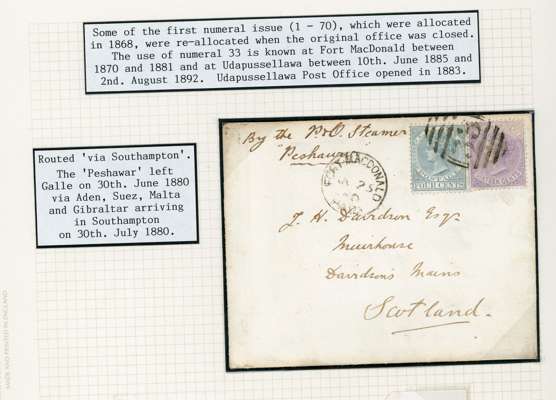 Some of the first numeral issue (1 - 70), which were allocated
in 1868, were re-allocated when the original office was closed.
The use of numeral 33 is known at Fort MacDonald between
1870 and 1881 and at Udapussellawa between 10th. June 1885 and
2nd. August 1892. Udapussellawa Post Office opened in 1883.
Routed 'via Southampton'.
The 'Peshawar' left
Galle on 30th. June 1880
via Aden, Suez, Malta
and Gibraltar arriving
in Southampton
on 30th. July 1880.
By the P&O. Steamer
"Peshawar"
FORT-MACDONALD
FOUR CENTS
J. H. Davidson Esqr
Muirhouse
Davidson's Mains
Scotland.
MADE AND PRINTED IN ENGLAND